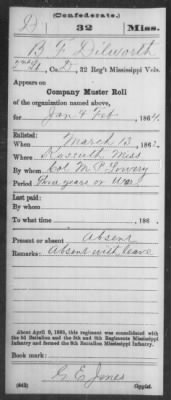 (Confederate.)
D 32 Miss.
B F Dilworth
2nd Lt, Co. D, 32 Reg't Mississippi Vols.
Appears on
Company Muster Roll
of the organization named above,
for Jan & Feb, 1864.
Enlisted:
When March 13, 1862.
Where Kossuth Miss
By whom Col M. P. Lowery
Period Three years or War
Last paid:
By whom
To what time , 186 .
Present or absent Absent
Remarks: Absent with leave
About April 9, 1865, this regiment was consolidated with
the 3d Battalion and the 5th and 8th Regiments Mississippi
Infantry and formed the 8th Battalion Mississippi Infantry.
Book mark:
G. E. Jones
(642) Copyist.